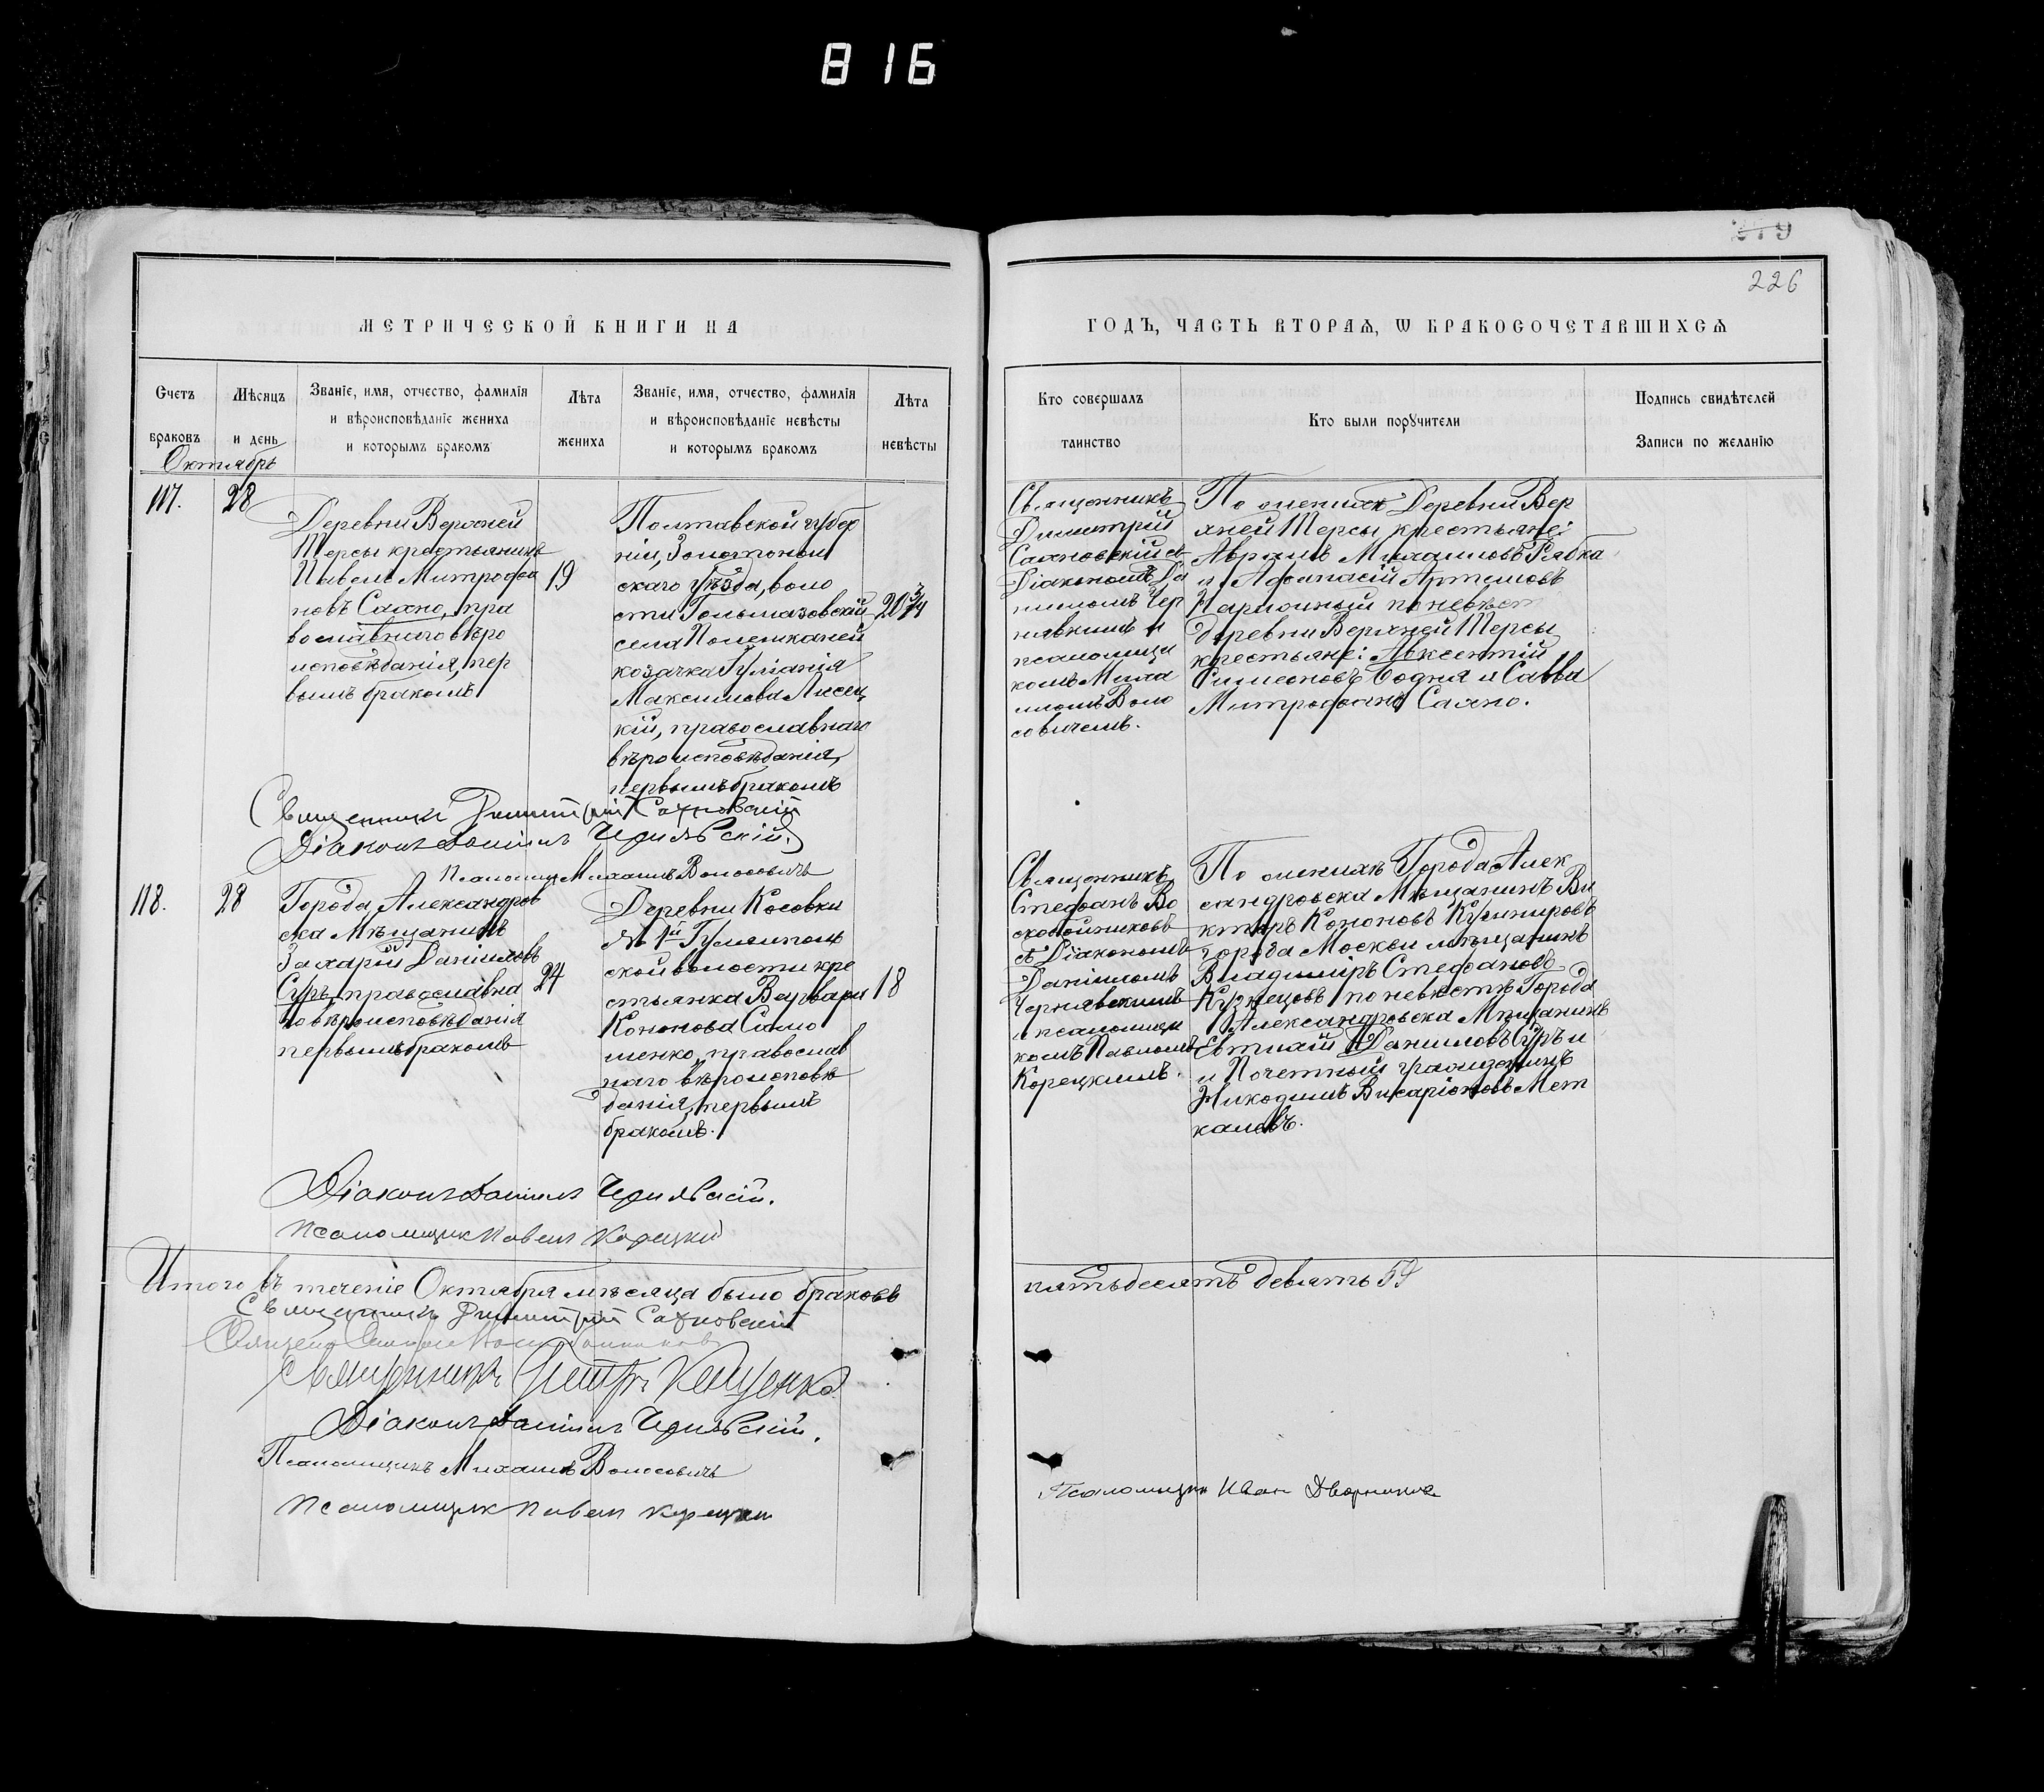 816
279
226
МЕТРИЧЕСКОЙ КНИГИ НА
ГОДЪ, ЧАСТЬ ВТОРАЯ, Ѡ БРАКОСОЧЕТАВШИХСЯ
Счетъ браковъ
Мѣсяцъ и день
Званіе, имя, отчество, фамилія
и вѣроисповѣданіе жениха
и которымъ бракомъ
Лѣта жениха
Званіе, имя, отчество, фамилія
и вѣроисповѣданіе невѣсты
и которымъ бракомъ
Лѣта невѣсты
Кто совершалъ таинство
Кто были поручители
Подпись свидѣтелей
Записи по желанію
Октябрь
117.
28
Деревни Верхней
Терсы крестьянинъ
Павелъ Митрофа
новъ Сахно, пра
вославнаго вѣро
исповѣданія, пер
вымъ бракомъ
19
Полтавской губер
ніи, Золотонош
скаго уѣзда, воло
сти Гельмязовской
села
козачка Гуліанія
Максимова Лисец
кій, православнаго
вѣроисповѣданія,
первымъ бракомъ
20 3/4
Священникъ
Димитрій
Сахновскій съ
Діакономъ Да
ніиломъ Чер
нявскимъ и
псаломщи
комъ Миха
иломъ Воло
совичемъ.
По женихѣ Деревни Вер
хней Терсы крестьяне:
Аврамъ Михаиловъ Рябка
и Афанасій Артемовъ
по невѣст
деревни Верхней Терсы
крестьяне: Авксентій
Симеоновъ Бодня и Савва
Митрофановъ Сахно.
Священникъ Димитрій Сахновскій
Діаконъ Даніилъ Чернявскій.
Псаломщ Михаилъ Волосовичъ
118.
28
Города Александров
ска Мѣщанинъ
Захарій Даніиловъ
Суръ, православна
го вѣроисповѣданія
первымъ бракомъ
24
Деревни Косовки
1й Гуляйполь
ской волости кре
стьянка Варвара
Кононова Само
ненко, православ
наго вѣроисповѣ
данія, первымъ
бракомъ.
18
Священникъ
Стефанъ Во
скобойниковъ
съ Діакономъ
Даніиломъ
Чернявскимъ
и псаломщи
комъ Павломъ
Корецкимъ.
По женихѣ Города Алек
сандровска Мѣщанинъ Ви
кторъ Кононовъ Кушнировъ
города Москвы мѣщанинъ
Владиміръ Стефановъ
Кузнецовъ по невѣстѣ Города
Александровска Мѣщанинъ
Евтихій Даниловъ Суръ и
и Почетный гражданинъ
Никодимъ Висаріоновъ Мет
каловъ.
Діаконъ Даніилъ Чернявскій.
Псаломщик Павелъ Корецкій
Итого въ теченіе Октября мѣсяца было браковъ
пятьдесятъ девять 59
Священникъ Димитрій Сахновскій
Священникъ Петръ Кащенко
Діаконъ Даніилъ Чернявскій.
Псаломщикъ Михаилъ Волосовичъ
Псаломщик Павелъ Корецкій
Псаломщик Иван Дворников